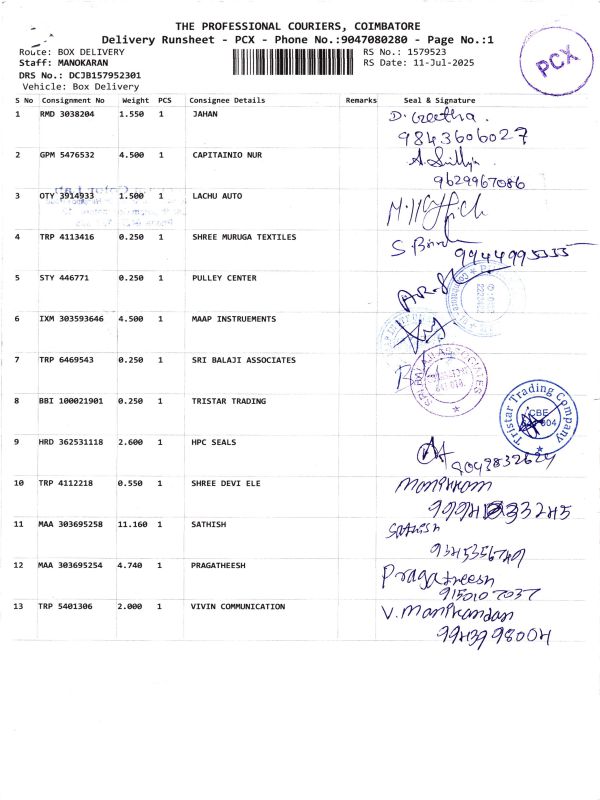 THE PROFESSIONAL COURIERS, COIMBATORE
Delivery Runsheet - PCX - Phone No.:9047080280 - Page No.:1
Route: BOX DELIVERY RS No.: 1579523
Staff: MANOKARAN RS Date: 11-Jul-2025
DRS No.: DCJB157952301
Vehicle: Box Delivery
PCX
S No Consignment No Weight PCS Consignee Details Remarks Seal & Signature
1 RMD 3038204 1.550 1 JAHAN D. Geetha.
9843606027
2 GPM 5476532 4.500 1 CAPITAINIO NUR
9629967086
3 OTY 3914933 1.500 1 LACHU AUTO
4 TRP 4113416 0.250 1 SHREE MURUGA TEXTILES
9944995555
5 STY 446771 0.250 1 PULLEY CENTER
6 IXM 303593646 4.500 1 MAAP INSTRUEMENTS
7 TRP 6469543 0.250 1 SRI BALAJI ASSOCIATES
SRI BALAJI ASSOCIATES
8 BBI 100021901 0.250 1 TRISTAR TRADING
Tristar Trading Company
CBE
9 HRD 362531118 2.600 1 HPC SEALS
9043832624
10 TRP 4112218 0.550 1 SHREE DEVI ELE
11 MAA 303695258 11.160 1 SATHISH Sathish
9345356749
12 MAA 303695254 4.740 1 PRAGATHEESH Pragatheesh
9150107037
13 TRP 5401306 2.000 1 VIVIN COMMUNICATION V. Manikandan
9943998004